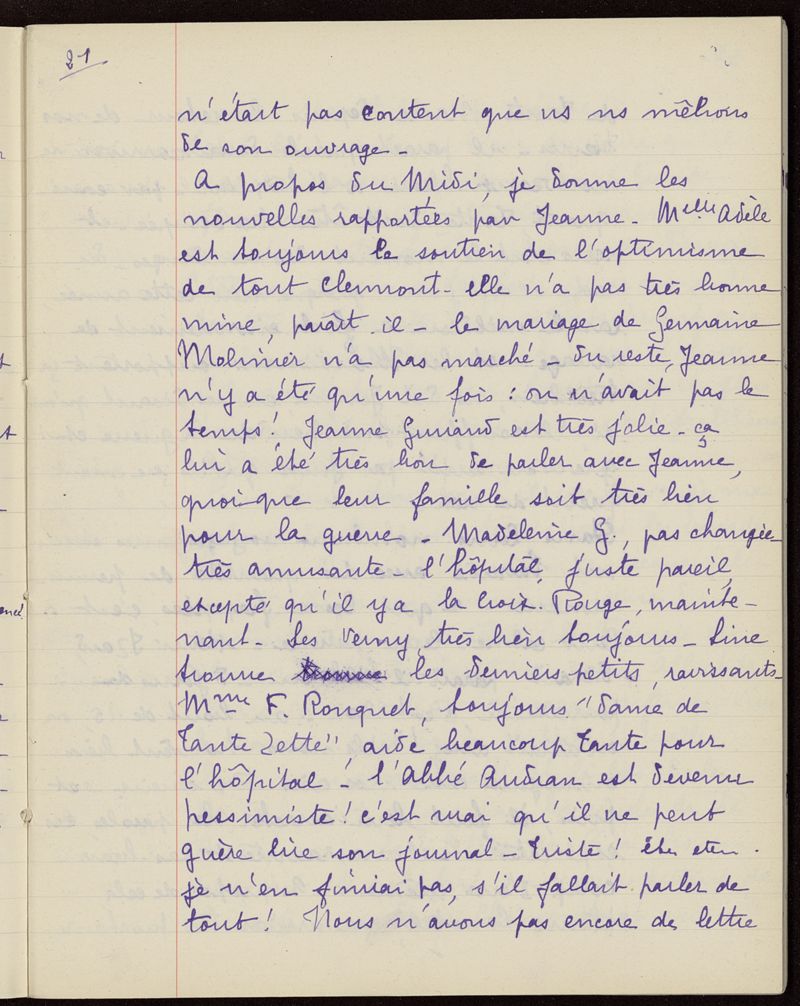 21
n'était pas content que ns ns mêlions
de son ouvrage -
A propos du Midi, je donne les
nouvelles rapportées par Jeanne - Melle Adèle
est toujours le soutien de l'optimisme
de tout Clermont - elle n'a pas très bonne
mine, paraît-il - le mariage de Germaine
Molinier n'a pas marché - du reste, Jeanne
n'y a été qu'une fois : on n'avait pas le
temps ! Jeanne est très jolie - ça
lui a été très bon de parler avec Jeanne,
quoi-que leur famille soit très bien
pour la guerre - Madeleine G., pas changée -
très amusante - l'hôpital, juste pareil,
excepté qu'il y a la Croix-Rouge, mainte-
nant - Les Verny, très bien toujours - Line
trouve les derniers petits, ravissants -
Mme F. Rouquet, toujours "dame de
Tante Zette", aide beaucoup tante pour
l'hôpital - l'Abbé Audran est devenu
pessimiste ! c'est vrai qu'il ne peut
guère lire son journal - Triste !
je n'en finirai pas, s'il fallait parler de
tout ! Nous n'avons pas encore de lettre